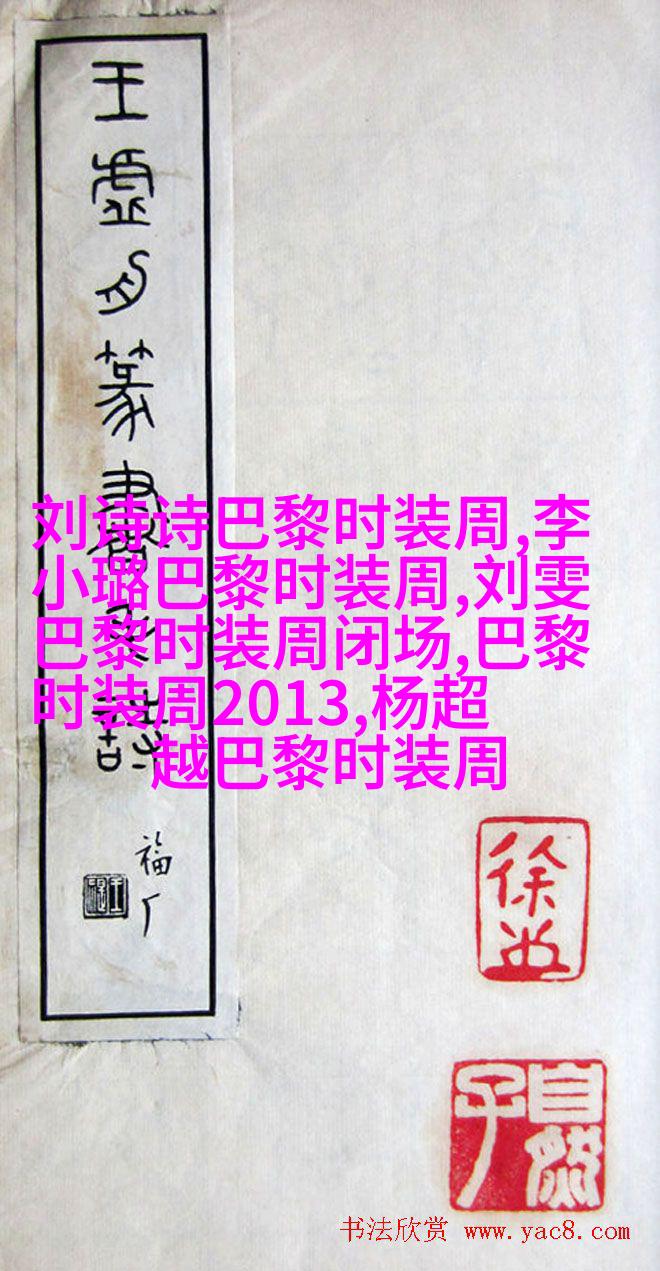 王虛舟篆書
福厂
刘诗诗巴黎时装周,李
小璐巴黎时装周,刘雯
巴黎时装周闭场,巴黎
时装周2013,杨超
越巴黎时装周
自然
子
书法欣赏 www.yac8.com